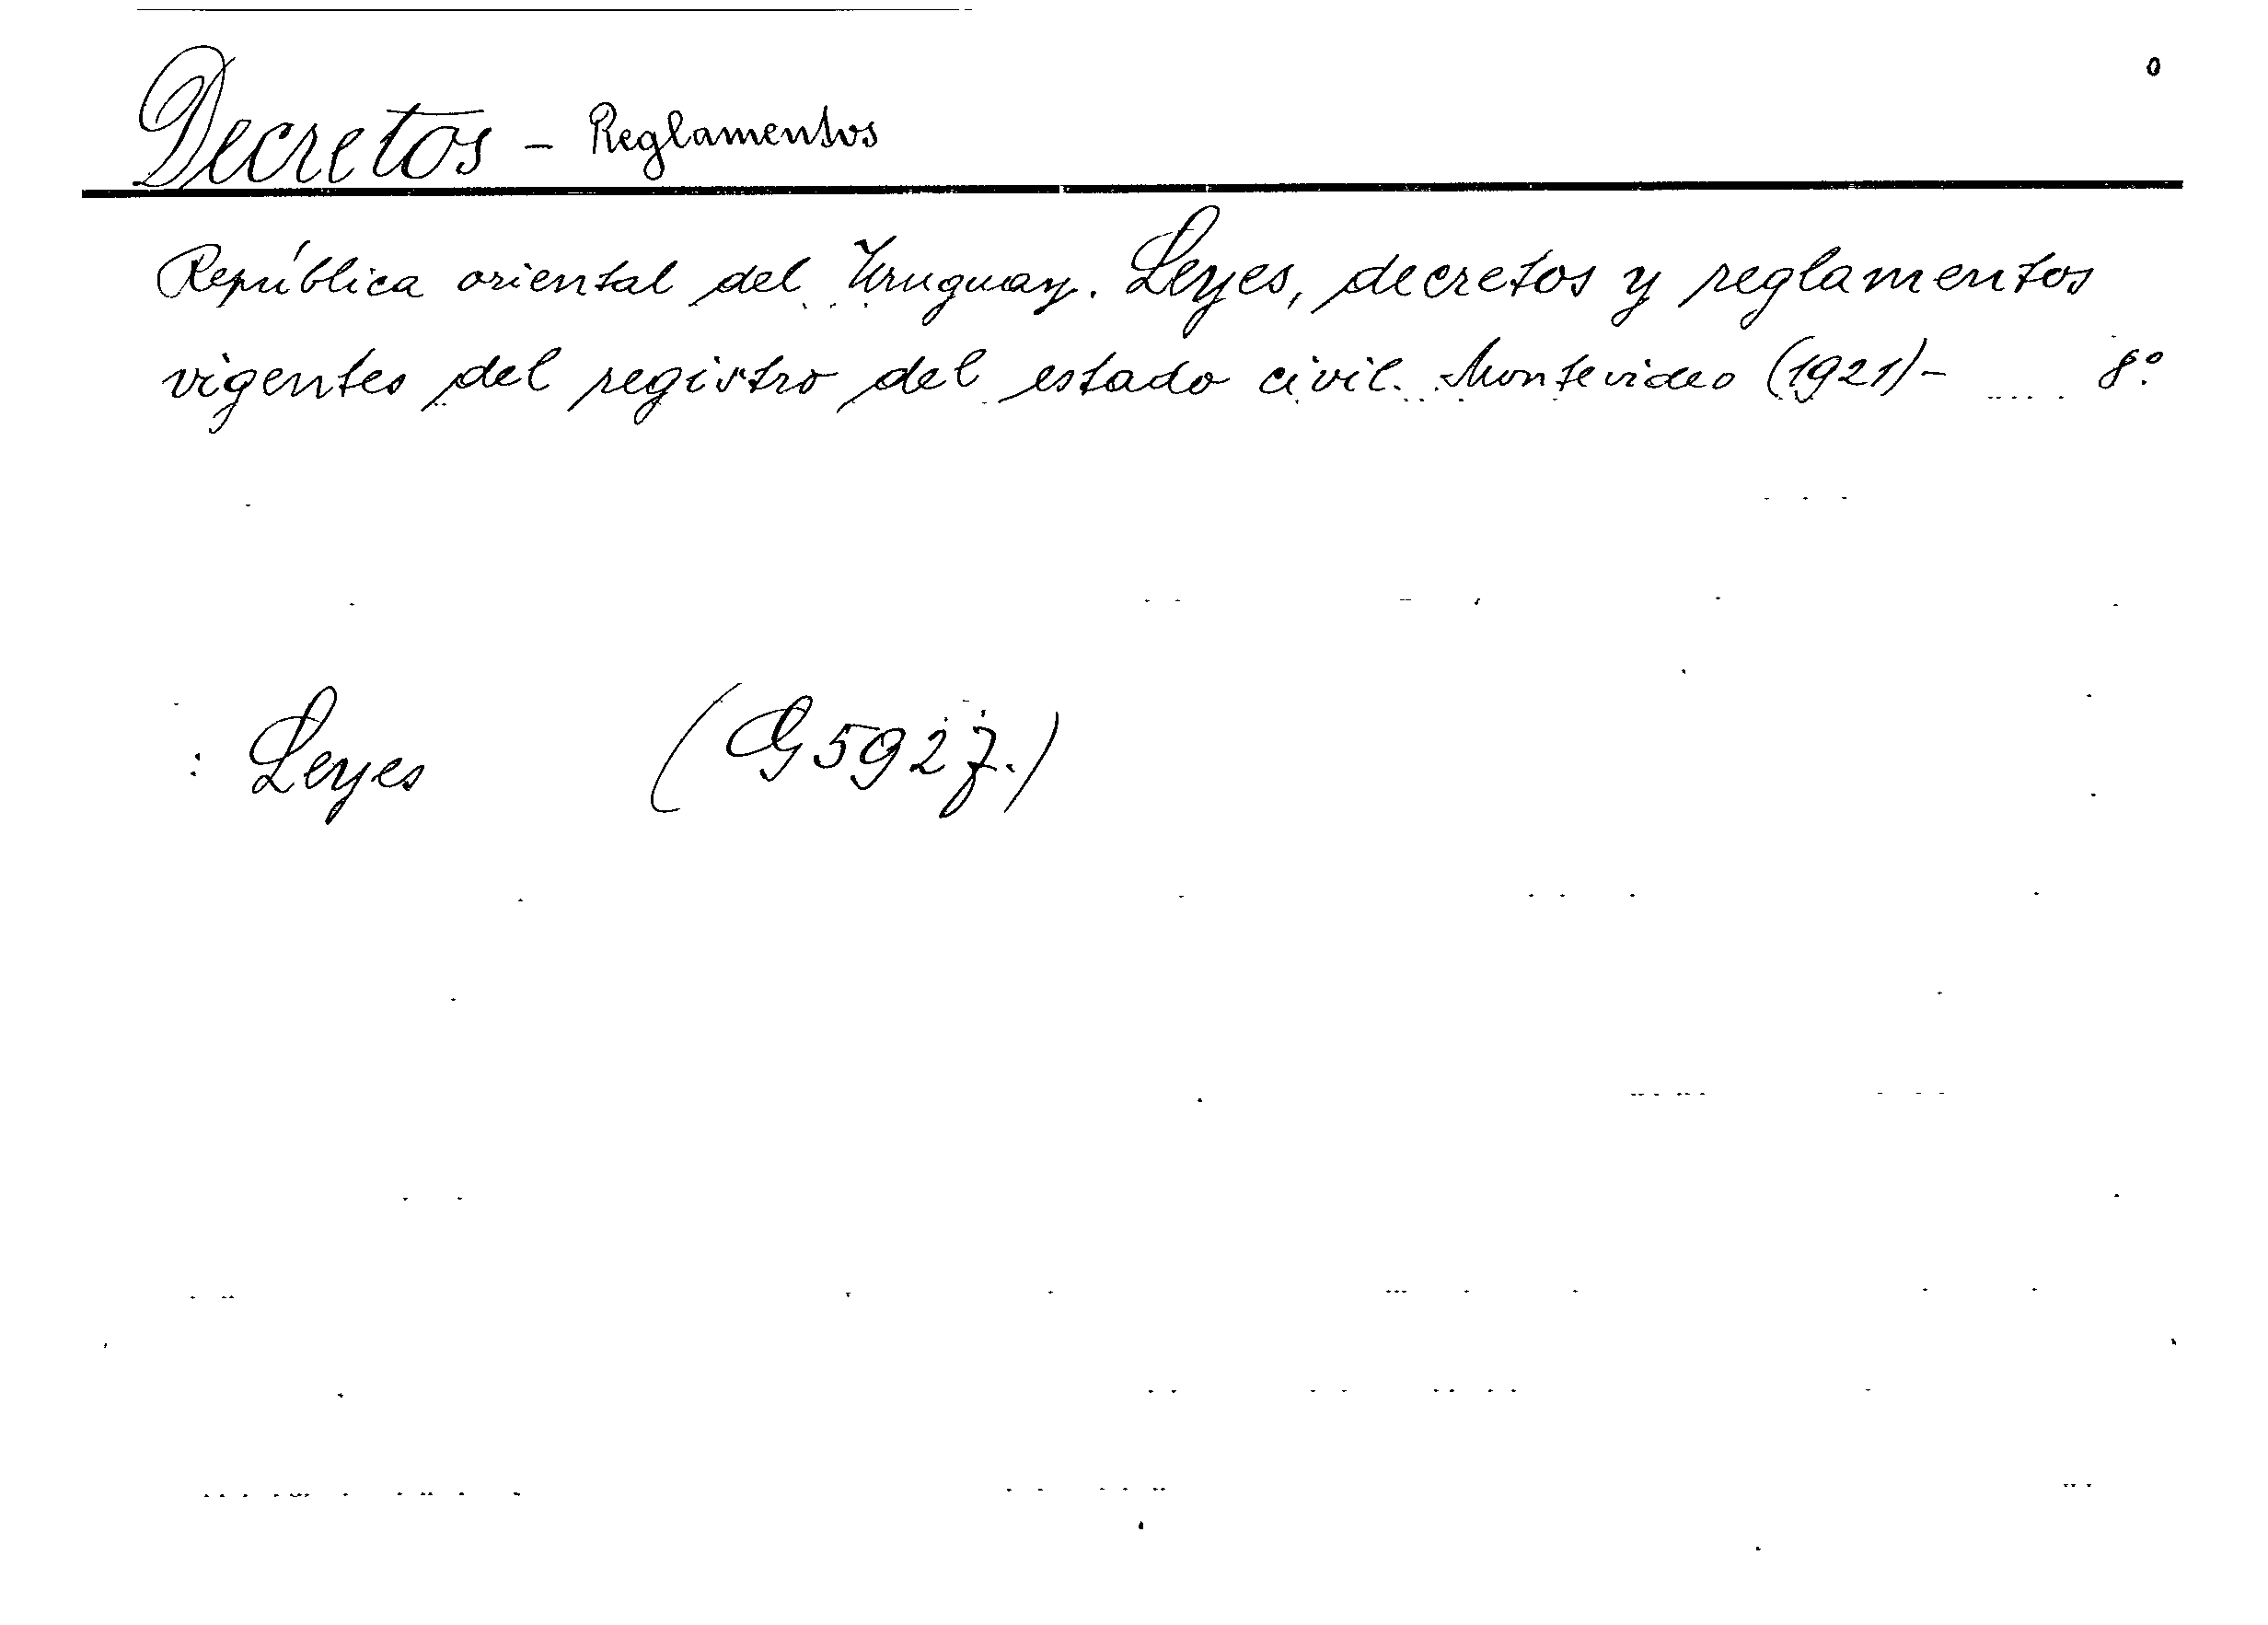 Decretos - Reglamentos
República oriental del Uruguay. Leyes, decretos y reglamentos
vigentes del registro del estado civil. Montevideo (1921)- 8º.
: Leyes (G 5927.)